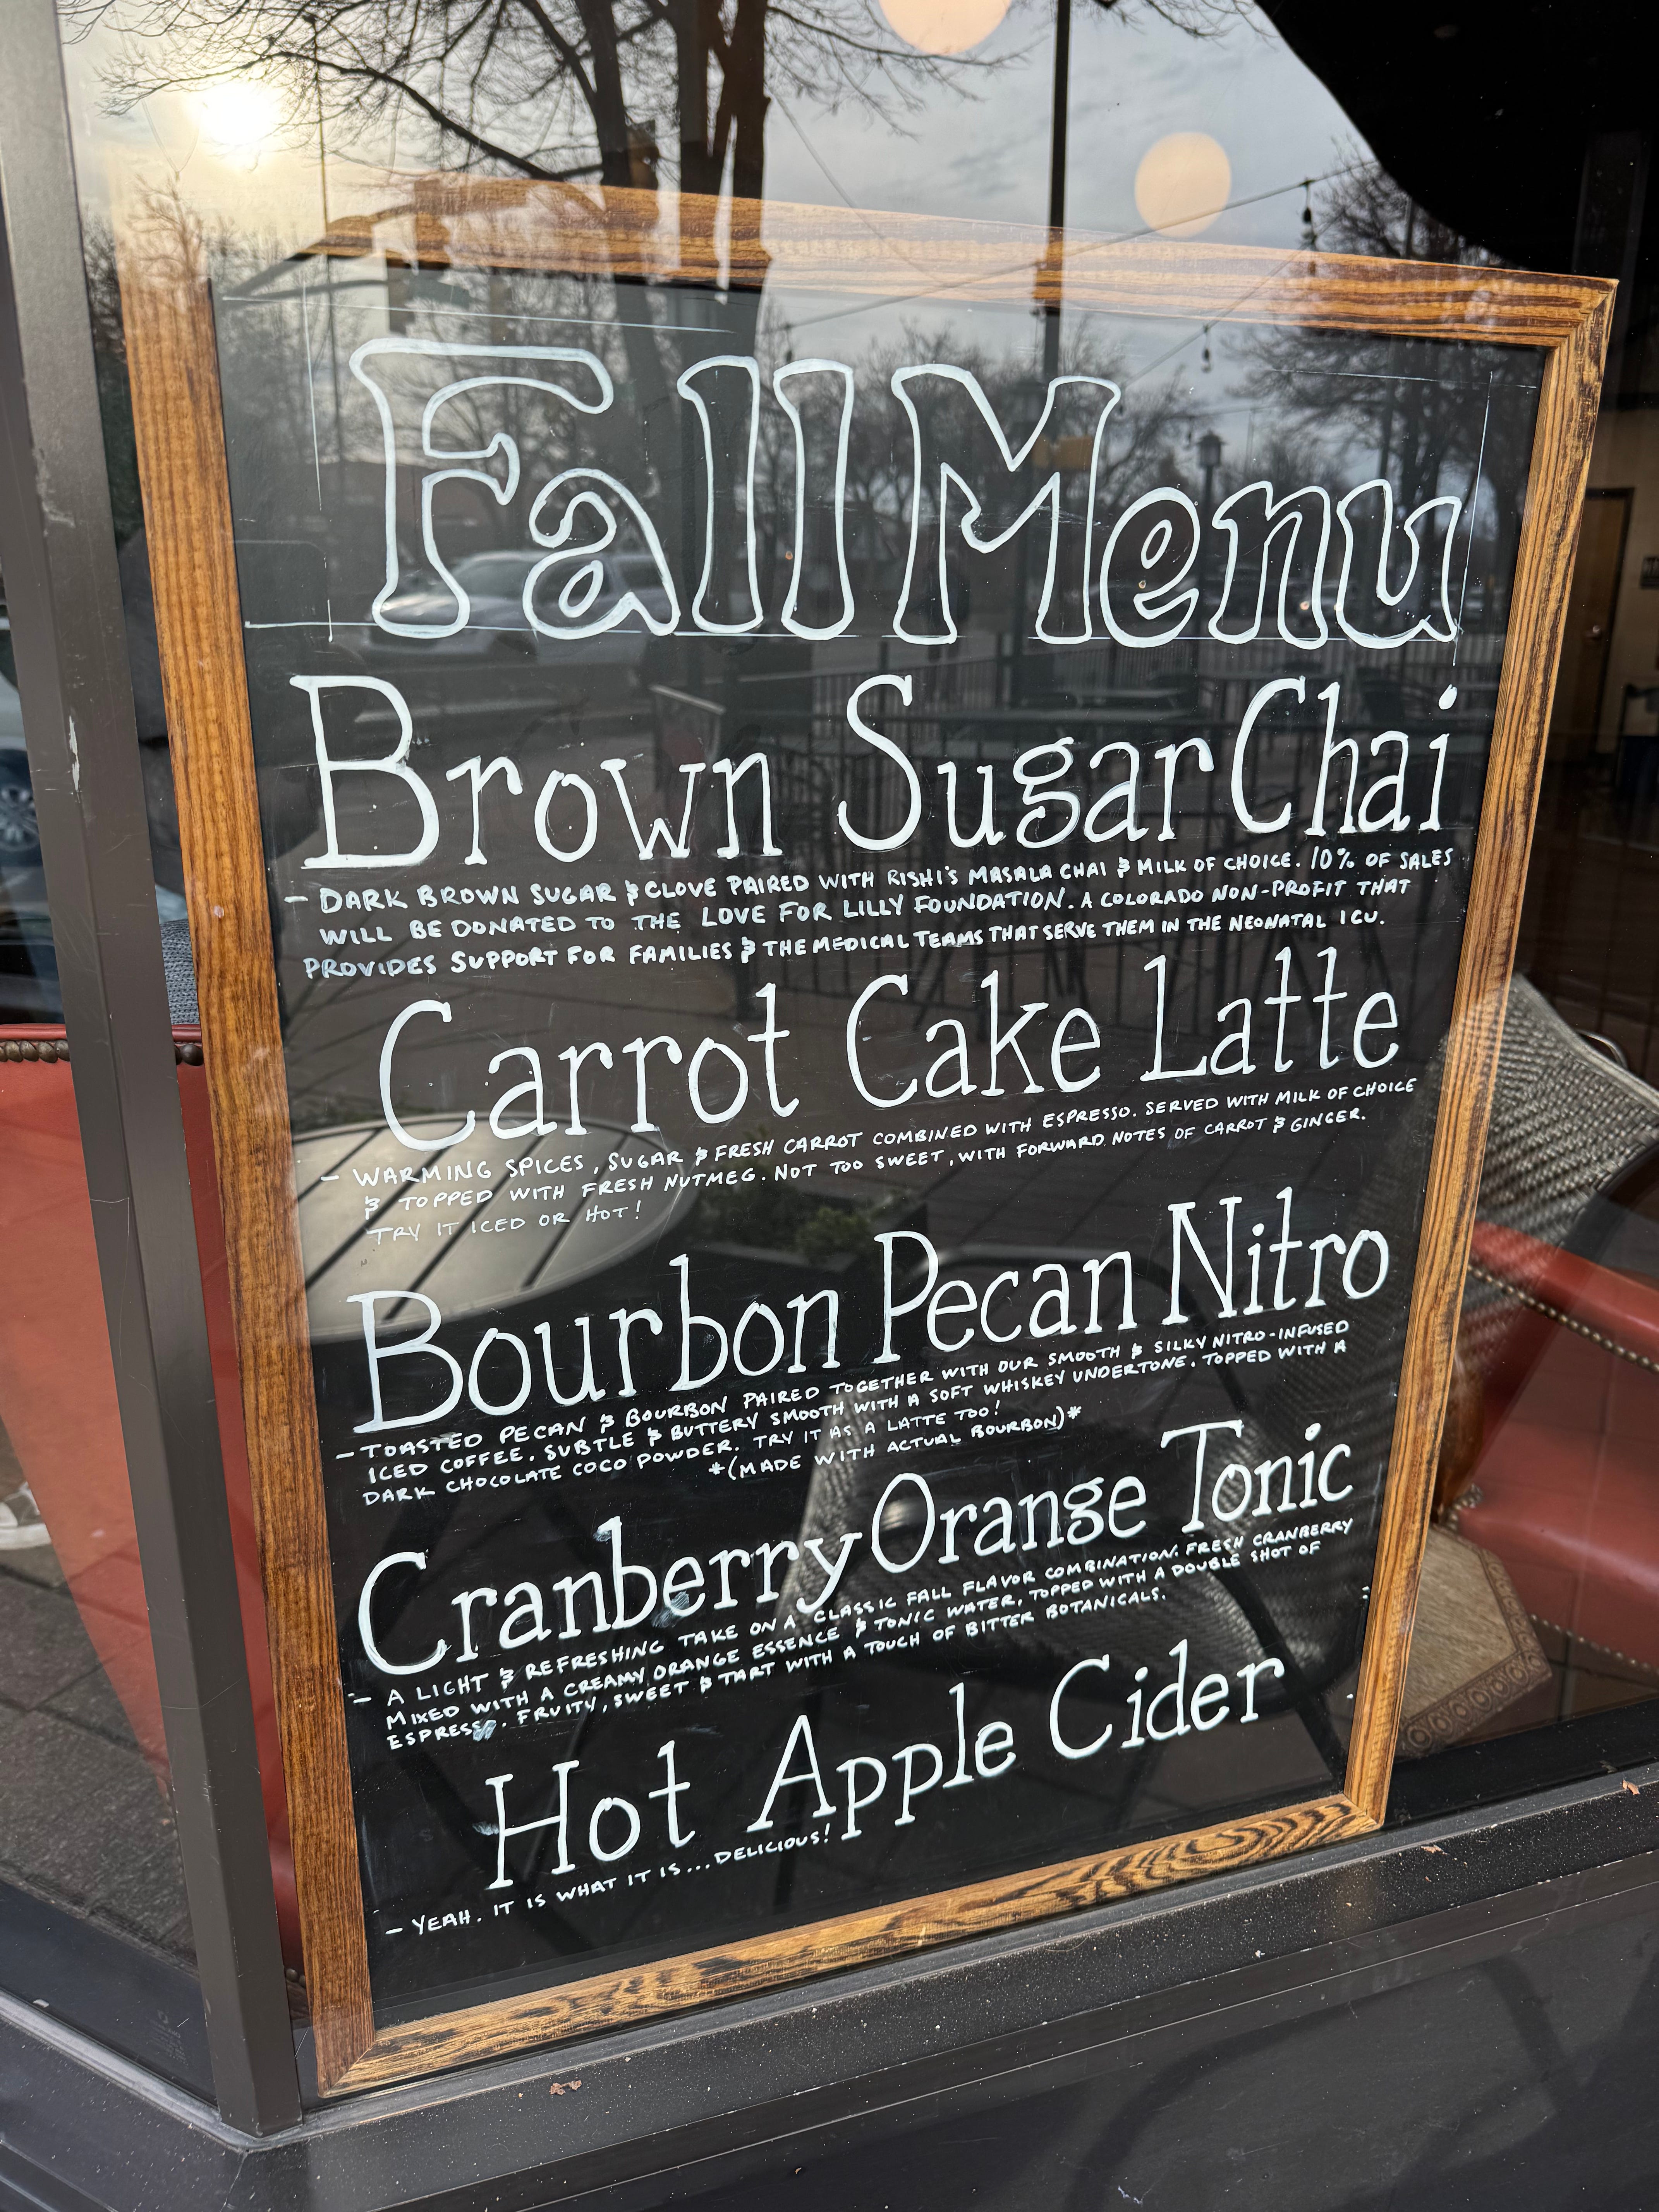 Fall Menu
Brown Sugar Chai
- DARK BROWN SUGAR & CLOVE PAIRED WITH RISHI'S MASALA CHAI & MILK OF CHOICE. 10% OF SALES
WILL BE DONATED TO THE LOVE FOR LILLY FOUNDATION. A COLORADO NON-PROFIT THAT
PROVIDES SUPPORT FOR FAMILIES & THE MEDICAL TEAMS THAT SERVE THEM IN THE NEONATAL ICU.
Carrot Cake Latte
- WARMING SPICES, SUGAR & FRESH CARROT COMBINED WITH ESPRESSO. SERVED WITH MILK OF CHOICE
& TOPPED WITH FRESH NUTMEG. NOT TOO SWEET, WITH FORWARD NOTES OF CARROT & GINGER.
TRY IT ICED OR HOT!
Bourbon Pecan Nitro
- TOASTED PECAN & BOURBON PAIRED TOGETHER WITH OUR SMOOTH & SILKY NITRO-INFUSED
ICED COFFEE. SUBTLE & BUTTERY SMOOTH WITH A SOFT WHISKEY UNDERTONE. TOPPED WITH A
DARK CHOCOLATE COCO POWDER. TRY IT AS A LATTE TOO!
*(MADE WITH ACTUAL BOURBON)*
Cranberry Orange Tonic
- A LIGHT & REFRESHING TAKE ON A CLASSIC FALL FLAVOR COMBINATION. FRESH CRANBERRY
MIXED WITH A CREAMY ORANGE ESSENCE & TONIC WATER, TOPPED WITH A DOUBLE SHOT OF
ESPRESSO. FRUITY, SWEET & TART WITH A TOUCH OF BITTER BOTANICALS.
Hot Apple Cider
- YEAH. IT IS WHAT IT IS... DELICIOUS!